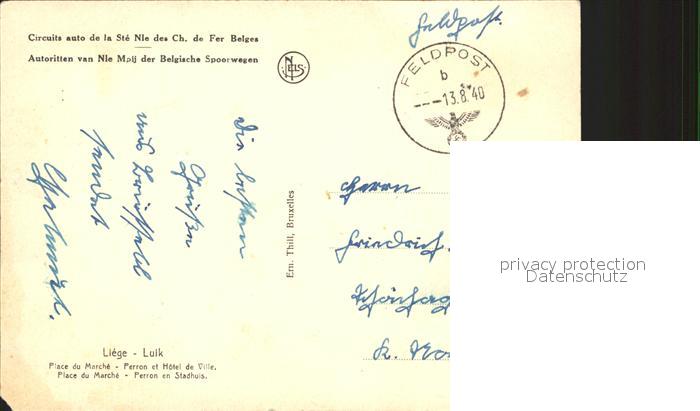 Circuits auto de la Sté Nle des Ch. de Fer Belges
Autoritten van Nle Mpij der Belgische Spoorwegen
NELS
Feldpost.
FELDPOST
b
---13.8.40
Die besten
Grüße
aus Brüssel
sendet
Helmut.
Ern. Thill, Bruxelles
Herrn
Friedrich
K.
Liége - Luik
Place du Marché - Perron et Hôtel de Ville.
Place du Marché - Perron en Stadhuis.
privacy protection
Datenschutz